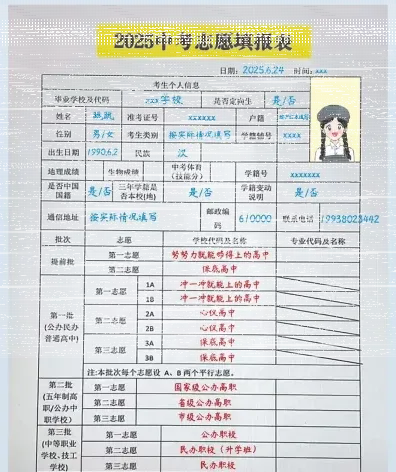 2025中考志愿填报表
日期: 2025.6.24 时间: xxx
考生个人信息
毕业学校及代码 xxx学校 是否定向生 是/否
姓名 准考证号 xxxxxx 户籍
性别 男/女 考生类别 按实际情况填写 学籍辅号 xxxx
出生日期 1990.6.2 民族 汉
地理成绩 生物成绩 中考体育(技能分) 学籍号 xxxxxxx
是否中国国籍 是/否 三年学籍是否本校(地) 是/否 学籍变动说明 是/否
通信地址 按实际情况填写 邮政编码 610000 联系电话 19938023442
批次 志愿 学校代码及名称 专业代码及名称
提前批 第一志愿 努努力就能够得上的高中
第二志愿 保底高中
第一批(公办民办普通高中) 第一志愿 1A 冲一冲就能上的高中
1B 冲一冲就能上的高中
第二志愿 2A 心仪高中
2B 心仪高中
第三志愿 3A 保底高中
3B 保底高中
注:本批次每个志愿设 A、B 两个平行志愿。
第二批(五年制高职/公办中职学校) 第一志愿 国家级公办高职
第二志愿 省级公办高职
第三志愿 市级公办高职
第三批(中等职业学校、技工学校) 第一志愿 公办职校
第二志愿 民办职校(升学班)
第三志愿 民办职校